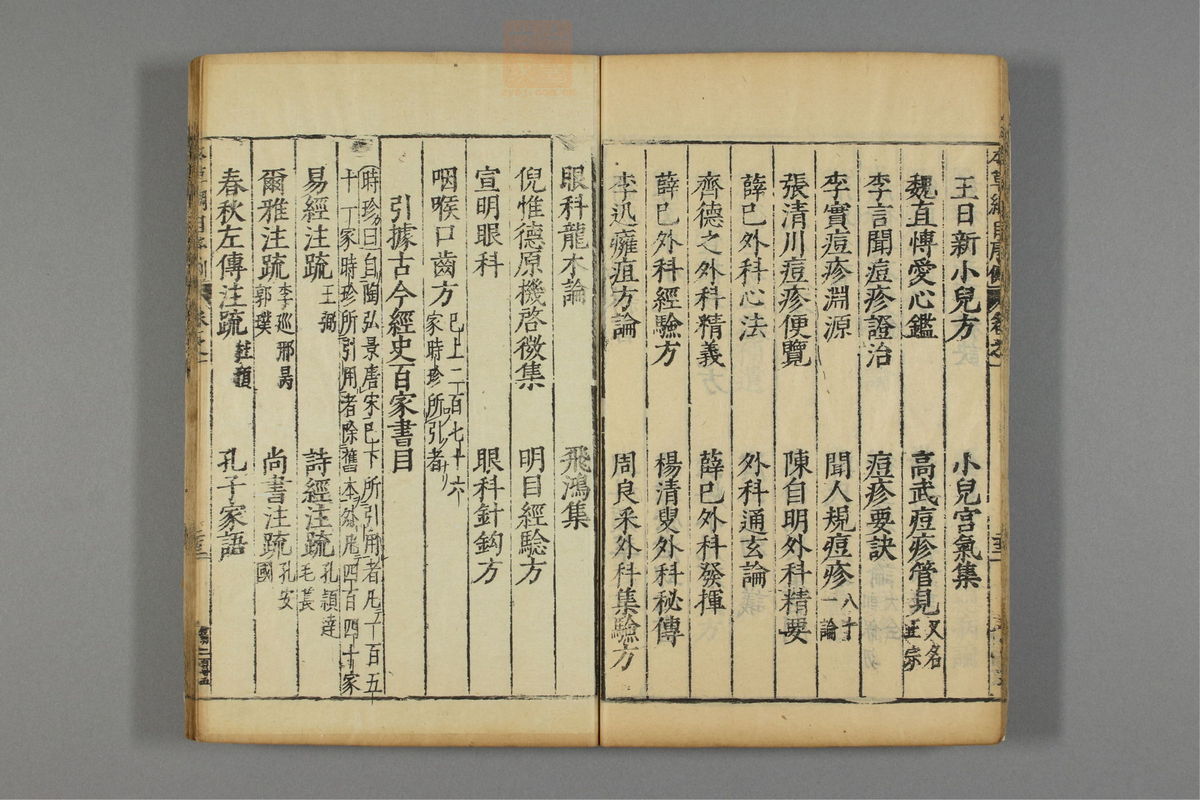 王日新小兒方 小兒宮氣集
魏直愽愛心鑑 高武痘疹管見又名正宗
李言聞痘疹證治 痘疹要訣
李實痘疹淵源 聞人規痘疹八十一論
張清川痘疹便覽 陳自明外科精要
薛巳外科心法 外科通玄論
齊德之外科精義 薛巳外科發揮
薛巳外科經驗方 楊清叟外科秘傳
李迅癰疽方論 周良采外科集驗方
眼科龍木論 飛鴻集
倪惟德原機啓微集 明目經驗方
宣明眼科 眼科針鈎方
咽喉口齒方 已上二百七十六家時珍所引者
引據古今經史百家書目
時珍曰自陶弘景唐宋已下所引用者凡一百五
十一家時珍所引用者除舊本外凡四百四十家
易經注疏王弼 詩經注疏孔穎達毛萇
爾雅注疏李巡邢昺郭璞 尚書注疏孔安國
春秋左傳注疏杜預 孔子家語